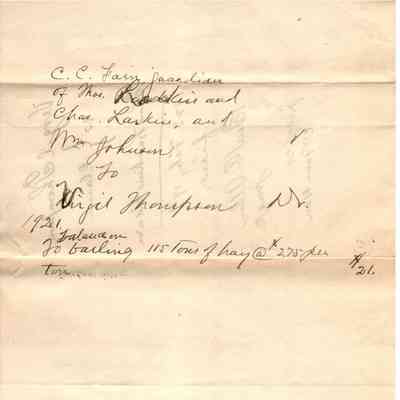 C. C. Fain guardian
of Thos. Larkins and
Chas. Larkins, and
Wm Johnson
To
Virgil Thompson Dr.
1921
To balance on
bailing 115 tons of hay @ $ 2.75 per
ton
$21.